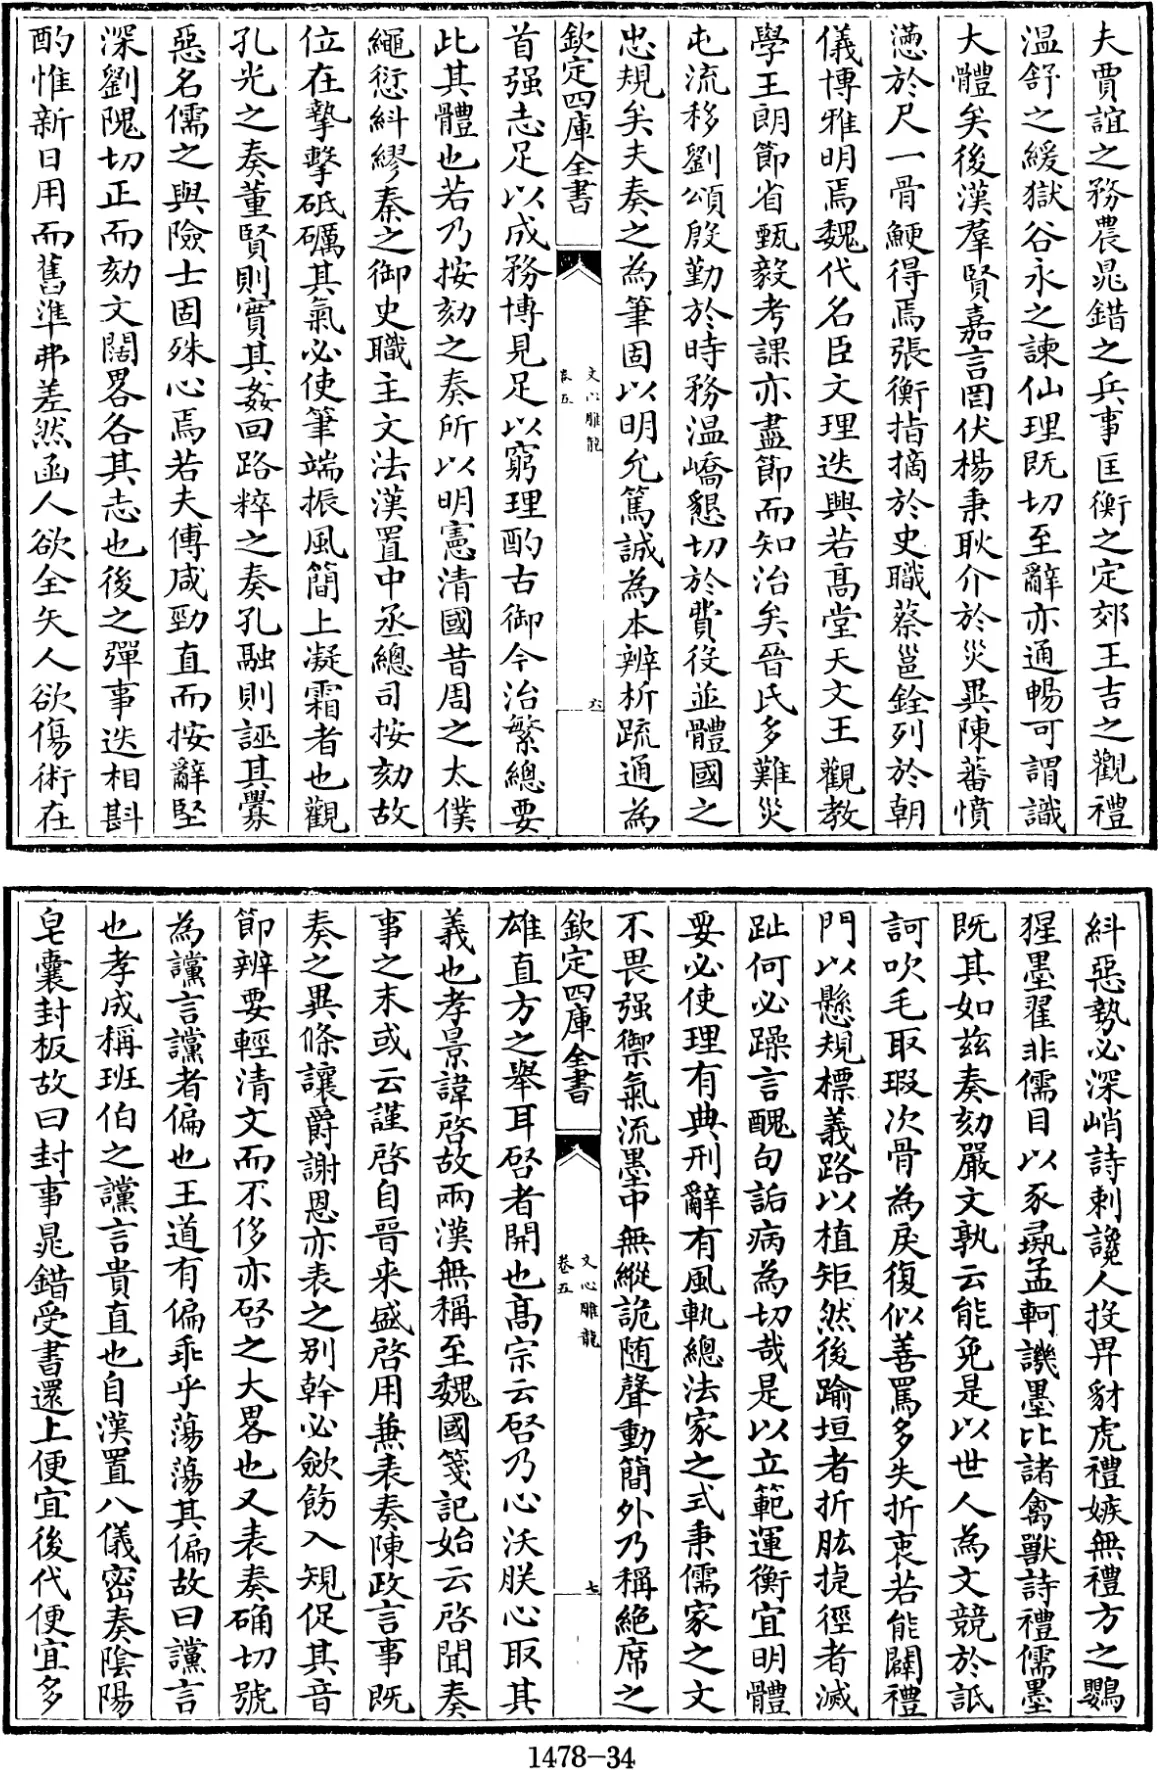 夫賈誼之務農晁錯之兵事匡衡之定郊王吉之觀禮
溫舒之緩獄谷永之諫仙理既切至辭亦通暢可謂識
大體矣後漢羣賢嘉言罔伏楊秉耿介於災異陳蕃憤
懣於尺一骨鯁得焉張衡指摘於史職蔡邕銓列於朝
儀博雅明焉魏代名臣文理迭興若髙堂天文王觀教
學王朗節省甄毅考課亦盡節而知治矣晉氏多難災
屯流移劉頌殷勤於時務溫嶠懇切於費役並體國之
忠規矣夫奏之為筆固以明允篤誠為本辨析疏通為
欽定四庫全書
文心雕龍
卷五
六
首强志足以成務博見足以窮理酌古御今治繁總要
此其體也若乃按劾之奏所以明憲清國昔周之太僕
繩愆糾繆秦之御史職主文法漢置中丞總司按劾故
位在摯擊砥礪其氣必使筆端振風簡上凝霜者也觀
孔光之奏董賢則實其姦回路粹之奏孔融則誣其釁
惡名儒之與險士固殊心焉若夫傅咸勁直而按辭堅
深劉隗切正而劾文闊畧各其志也後之彈事迭相斟
酌惟新日用而舊準弗差然函人欲全矢人欲傷術在
糾惡勢必深峭詩刺讒人投畀豺虎禮嫉無禮方之鸚
猩墨翟非儒目以豕彘孟軻譏墨比諸禽獸詩禮儒墨
既其如兹奏劾嚴文孰云能免是以世人為文競於詆
訶吹毛取瑕次骨為戾復似善罵多失折衷若能闢禮
門以懸規標義路以植矩然後踰垣者折肱捷徑者滅
趾何必躁言醜句詬病為切哉是以立範運衡宜明體
要必使理有典刑辭有風軌總法家之式秉儒家之文
不畏强禦氣流墨中無縱詭随聲動簡外乃稱絶席之
欽定四庫全書
文心雕龍
卷五
七
雄直方之舉耳啓者開也髙宗云啓乃心沃朕心取其
義也孝景諱啓故兩漢無稱至魏國箋記始云啓聞奏
事之末或云謹啓自晉來盛啓用兼表奏陳政言事既
奏之異條讓爵謝恩亦表之别幹必斂飭入規促其音
節辨要輕清文而不侈亦啓之大畧也又表奏确切號
為讜言讜者偏也王道有偏乖乎蕩蕩其偏故曰讜言
也孝成稱班伯之讜言貴直也自漢置八儀密奏陰陽
皁囊封板故曰封事晁錯受書還上便宜後代便宜多
1478-34